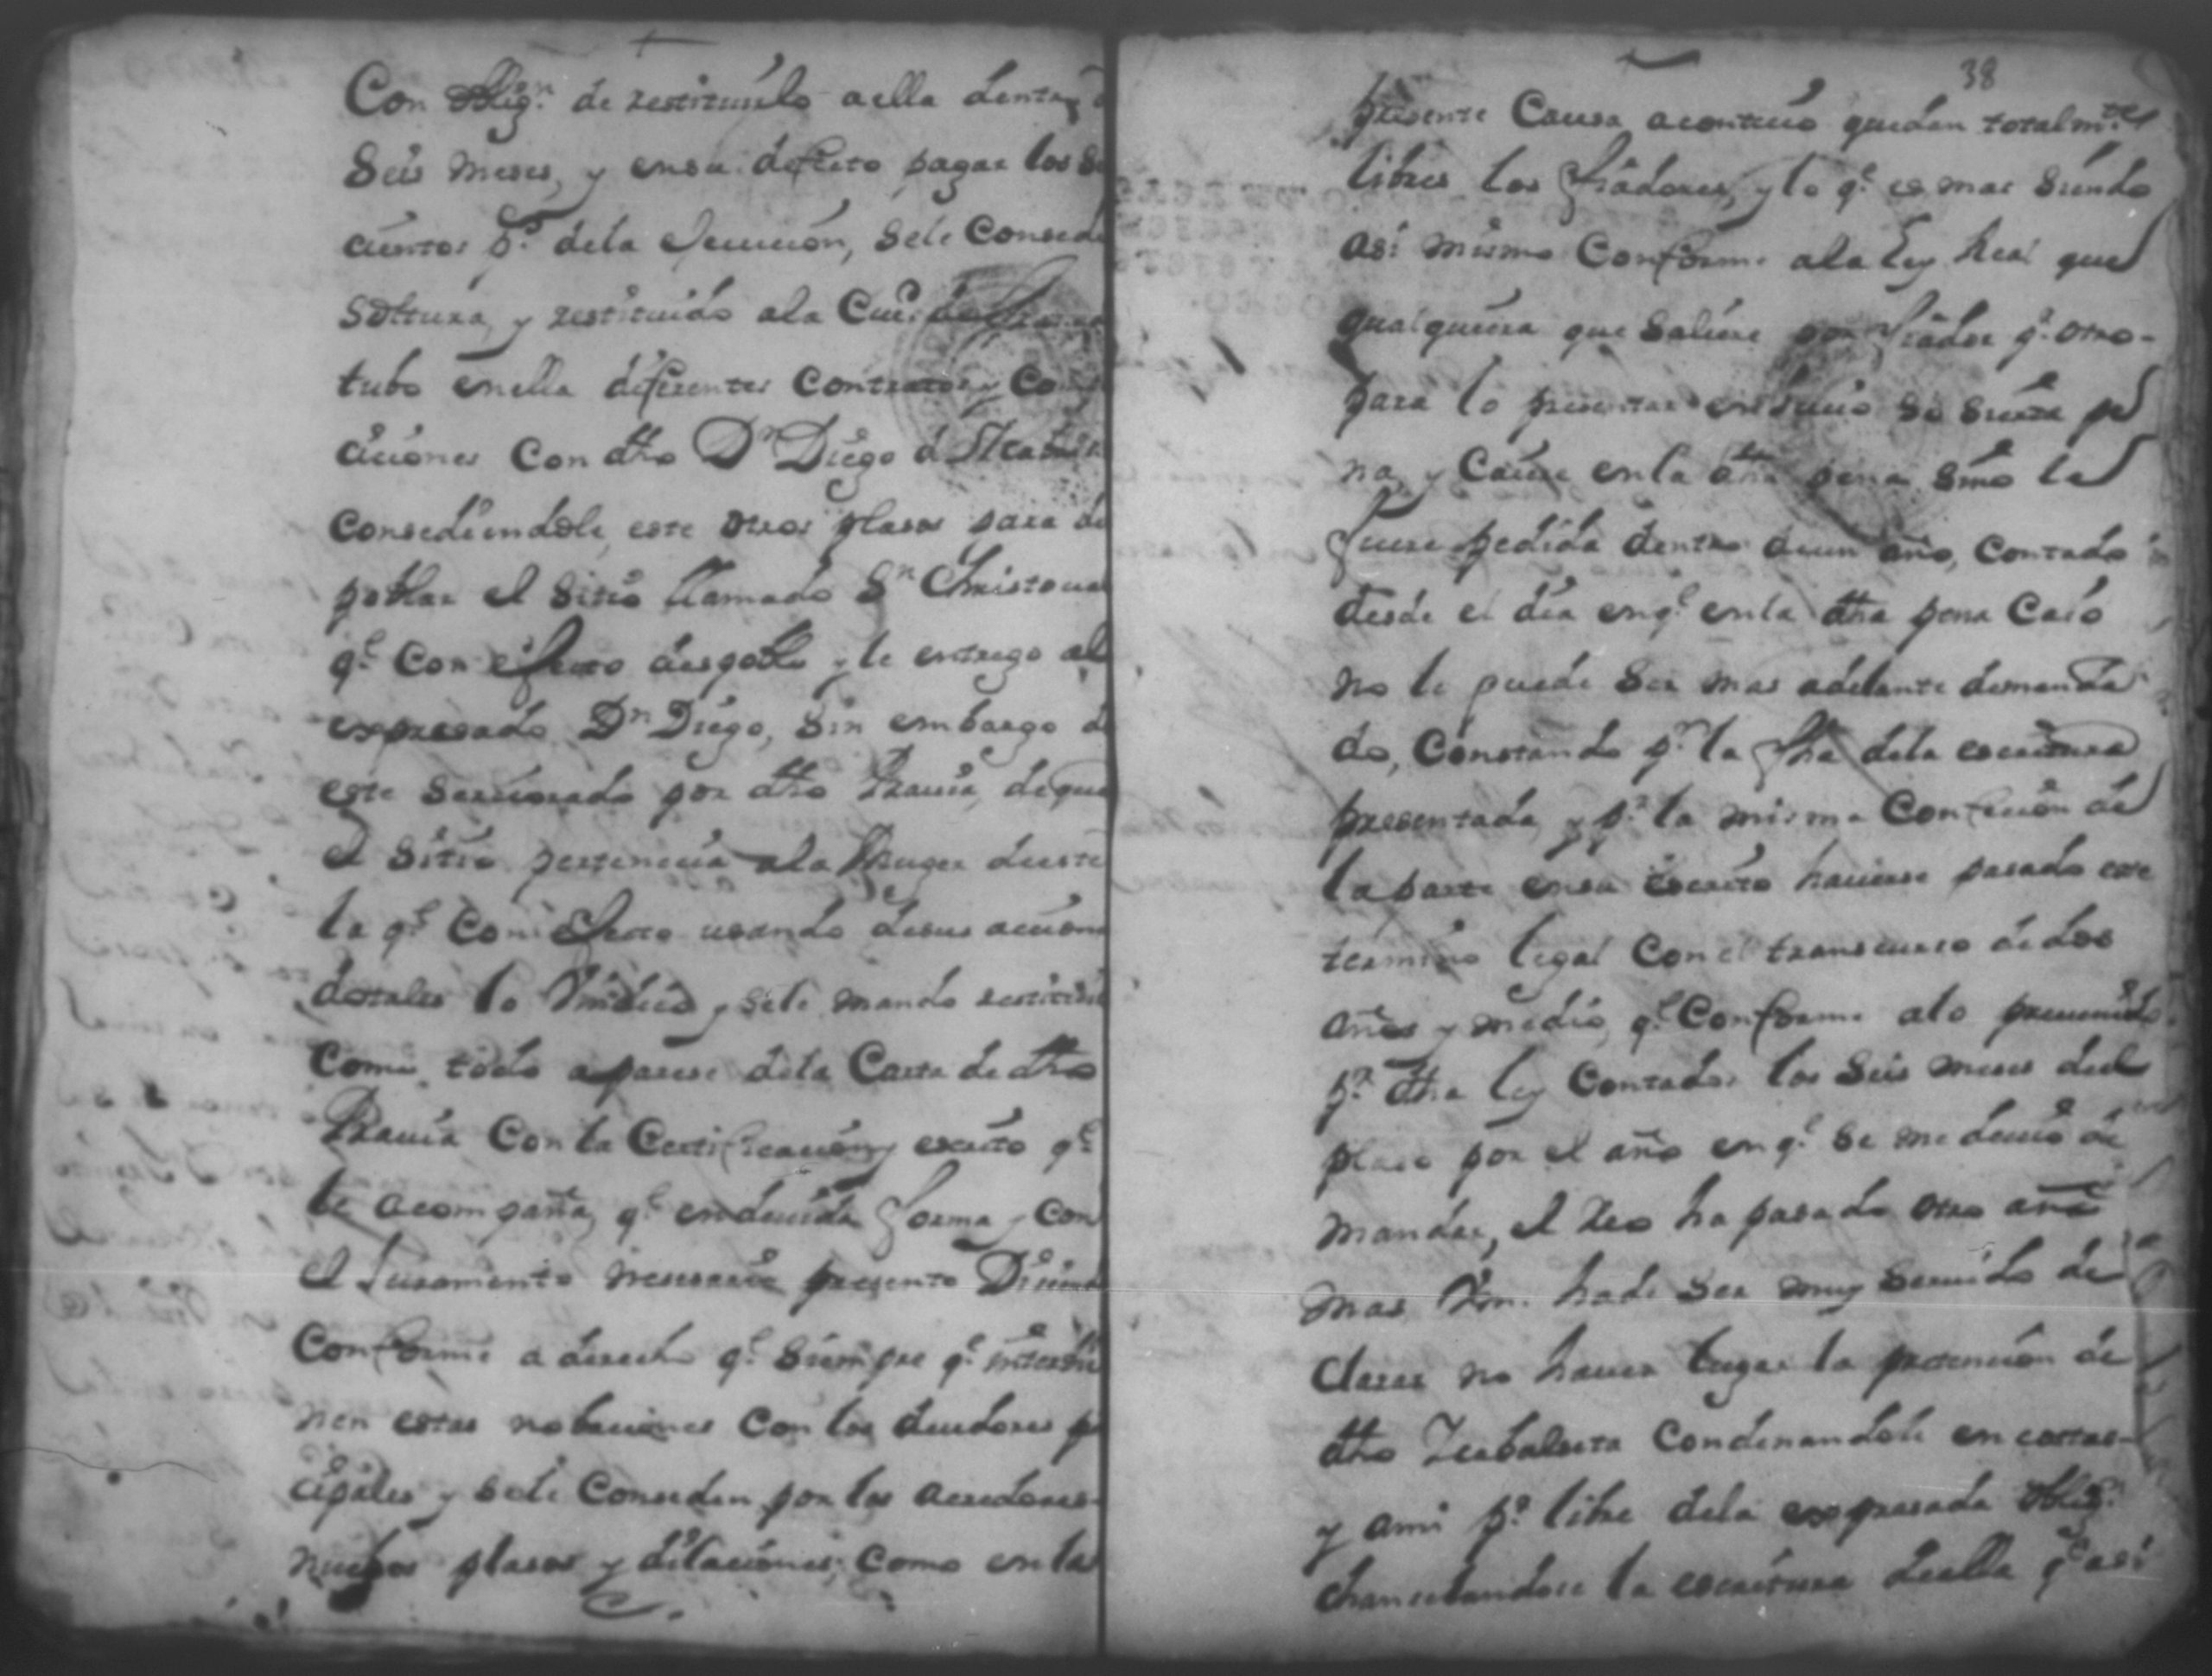 Con obligⁿ. de restituirlo a ella dentro d
Seis meses, y en su defecto pagar los se
cientos pˢ. dela execucion, sele Consedi
Soltura, y restituido ala Ciuᵈ. de
tubo en ella diferentes Contratos y Co
ciones Con dho Dⁿ Diego d
Consediendole, este otros plasos para de
poblar el sitio llamado Sⁿ Christoual
qᵉ Con efecto despoblo y le entrego al
expresado Dⁿ Diego, sin embargo d
este serciorado por dho Pravia, de que
el Sitio pertenecia ala Muger deeste
la qᵉ Con efecto usando desus acciones
dotales lo Vindico y sele mando restituir
Como todo aparese dela Carta de dho
Pravia Con la Certificacion y escrito qᵉ
le acompaña, qᵉ en deuida forma y con
el Juramento nesesario presento Diciendo
Conforme a derecho qᵉ siempre qᵉ interbie
nen estas nobaciones Con los deudores pr
cipales y sele Conseden por los acredores
nuebos plasos y dilaciones, Como en la
38
presente Causa acontecio quedan totalmᵗᵉ
libres los fiadores, y lo qᵉ es mas siendo
asi mismo Conforme ala Ley Real que
qualquiera que saliere por fiador pʳ otro
para lo presentar en Juicio so sierta pe
na, y Caiere en la dha pena sino le
fuere pedida dentro deun año, Contado
desde el dia en qᵉ en la dha pena Caio
no le puede ser mas adelante demanda
do, Constando pʳ la fha dela escritura
presentada, y pʳ la misma Confecion de
la parte en su escrito hauerse pasado este
termino legal Con el transcurso de dos
años y medio, qᵉ Conforme alo preuenido
pʳ dha ley Contados los seis meses del
plaso por el año en qᵉ se me deuio de
mandar, el reo ha pasado otro año
mas Vm. hade ser muy seruido de
clarar no hauer lugar la pretencion de
dho Condenandole en costas
y ami pᵉ. libre dela expresada obligⁿ.
chanselandose la escritura deella qᵉ asi